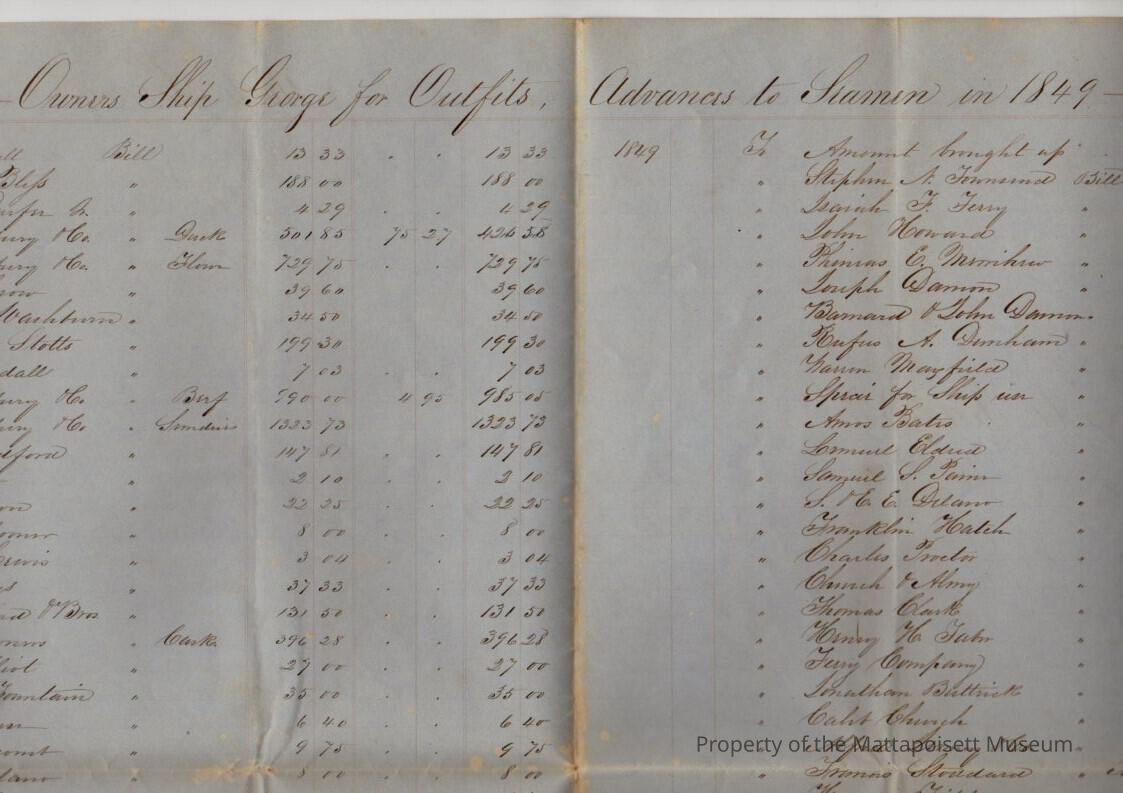 Owners Ship George for Outfits, Advances to Seamen in 1849
Bill 13 33 . . 13 33
Bliss " 188 00 188 00
" 4 29 . . 4 29
& Co. " Duck 501 85 75 27 426 58
& Co. " Flour 729 75 . . 729 75
" 39 60 39 60
Washburn " 34 50 34 50
Stotts " 199 30 199 30
dall " 7 03 . . 7 03
& Co. " Beef 990 00 4 95 985 05
& Co " Sundries 1323 73 1323 73
" 147 81 . . 147 81
" 2 10 . . 2 10
" 22 25 . . 22 25
" 8 00 . . 8 00
" 3 04 . . 3 04
" 37 33 . . 37 33
& Bros " 131 50 . . 131 50
" Cask 396 28 . . 396 28
" 27 00 . . 27 00
" 35 00 . . 35 00
" 6 40 . . 6 40
" 9 75 . . 9 75
" 8 00 . . 8 00
1849 To Amount brought up
" Stephen N. Townsend Bill
" Isaiah F. Terry "
" John Howard "
" Thomas E. Merrihew "
" Joseph Damon "
" Barnard & John Damon "
" Rufus A. Dunham "
" Mayfield "
" for Ship use "
" Amos Bates "
" Lemuel Eldred "
" Samuel S. "
" S. & E. E. Delano "
" Franklin Hatch "
" Charles Proctor "
" Church & Almy "
" Thomas Clark "
" Henry H. Taber "
" Ferry Company "
" Jonathan Buttrick "
" Caleb Church "
" Francis Stoddard "
Property of the Mattapoisett Museum